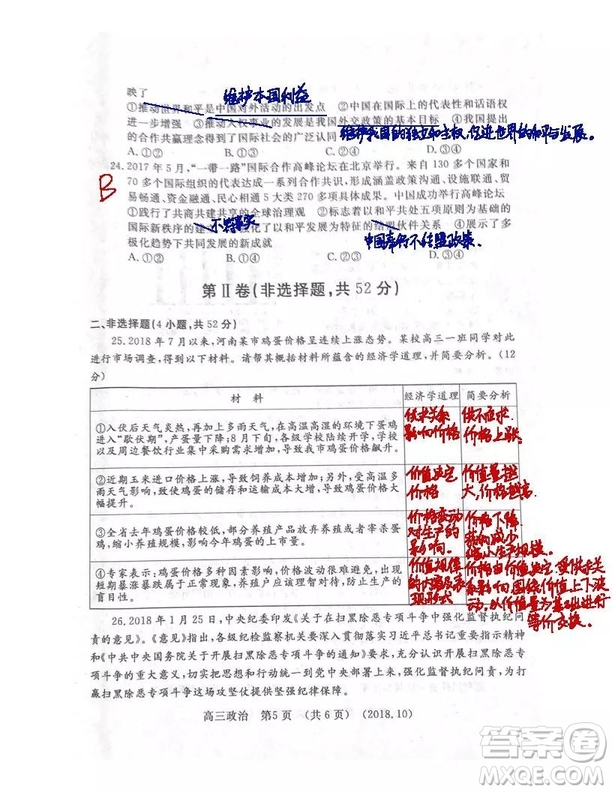 映了
维护本国利益
①推动世界和平是中国对外活动的出发点 ②中国在国际上的代表性和话语权
进一步增强 ③推动人权事业的发展是我国外交政策的基本目标 ④我国提出
的合作共赢理念得到了国际社会的广泛认同
维护我国的独立和主权,促进世界的和平与发展。
A.①② B.①③
24.2017 年 5 月,“一带一路”国际合作高峰论坛在北京举行。来自 130 多个国家和
B
70 多个国际组织的代表达成一系列合作共识,形成涵盖政策沟通、设施联通、贸
易畅通、资金融通、民心相通 5 大类 270 多项成果。中国成功举行高峰论坛
①践行了共商共建共享的全球治理观 ②标志着以和平共处五项原则为基础的
国际新秩序的建立 ③形成了以和平发展为特征的结盟伙伴关系 ④展示了多
不符事实
极化趋势下共同发展的新成就
中国奉行不结盟政策。
A.①② B.①④ C.②③ D.③④
第Ⅱ卷(非选择题,共 52 分)
二、非选择题(4 小题,共 52 分)
25.2018 年 7 月以来,河南某市鸡蛋价格呈连续上涨态势。某校高三一班同学对此
进行市场调查,得到以下材料。请帮其概括材料所蕴含的经济学道理,并简要分析。(12
分)
材 料 经济学道理 简要分析
①入伏后天气炎热,再加上多雨天气,在高温高湿的环境下蛋鸡
进入“歇伏期”,产蛋量下降。8 月份,各级学校陆续开学,学校
以及周边餐饮行业集中采购需求增加,导致我市鸡蛋价格上升。
供求关系
影响价格
供不应求,
价格上涨
②近期玉米进口价格上涨,导致饲养成本增加;另外,受高温多
雨天气影响,鸡蛋的储存和运输成本大大增加,导致鸡蛋价格大
幅提升。
价值决定
价格
价值量越
大,价格越高
③全省去年鸡蛋价格较低,部分养殖户品放弃养殖或者宰杀蛋
鸡,缩小养殖规模,影响了今年鸡蛋的上市量。
价格变动
对生产的
影响
价格下降
缩小生产规模。
④专家表示:鸡蛋价格影响因素多,价格波动很难避免,出现短
期暴涨暴跌属于正常现象,养殖户应该理智对待,防止生产的盲
目性。
价值规律
的内容及表
现形式
价值决定 受供求关
系影响 围绕价值上下波
动,以价值量为基础进行
等价交换。
26.2018 年 1 月 25 日,中央纪委印发《关于在扫黑除恶专项斗争中强化监督执纪问
责的意见》。《意见》指出,各级纪检监察机关要深入贯彻落实习近平总书记重要指示精神
和《中共中央国务院关于开展扫黑除恶专项斗争的通知》要求,充分认识开展扫黑除恶专项斗争
的重大意义,切实把思想和行动统一到党中央部署上来,强化监督执纪问责,为打
赢扫黑除恶专项斗争这场攻坚仗提供坚强纪律保障。
高三政治 第5页 (共6页) (2018.10)
答案圈
MXQE.COM